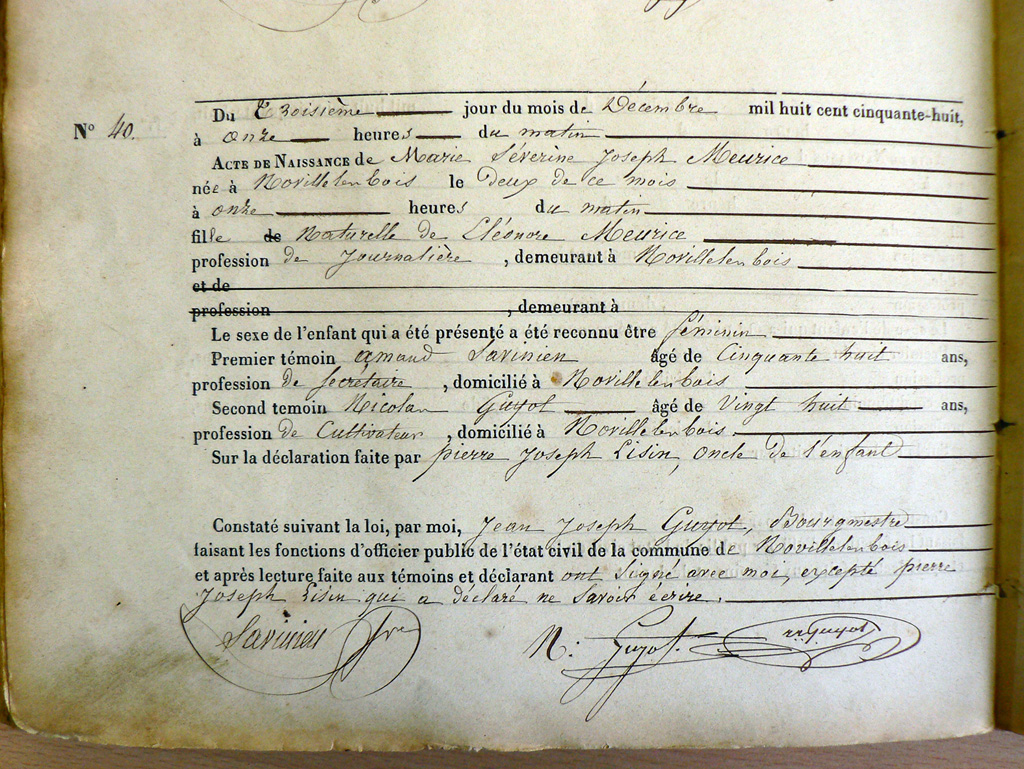 Nº 40.
Du troisième jour du mois de Décembre mil huit cent cinquante-huit,
à onze heures du matin
ACTE DE NAISSANCE de Marie Séverine Joseph Meurice
née à Novillelenbois le deux de ce mois
à onze heures du matin
fille de Naturelle de Eléonore Meurice
profession de Journalière, demeurant à Novillelenbois
et de
profession , demeurant à
Le sexe de l'enfant qui a été présenté a été reconnu être féminin
Premier témoin amand Savinien âgé de Cinquante huit ans,
profession de Secrétaire, domicilié à Novillelenbois
Second temoin Nicolas Guyot âgé de vingt huit ans,
profession de Cultivateur, domicilié à Novillelenbois
Sur la déclaration faite par pierre Joseph Lisin, oncle de l'enfant
Constaté suivant la loi, par moi, Jean Joseph Guyot, Bourgmestre
faisant les fonctions d'officier public de l'état civil de la commune de Novillelenbois
et après lecture faite aux témoins et déclarant ont signé avec moi, excepté pierre
Joseph Lisin qui a déclaré ne savoir écrire.
Savinien N: Guyot. Guyot